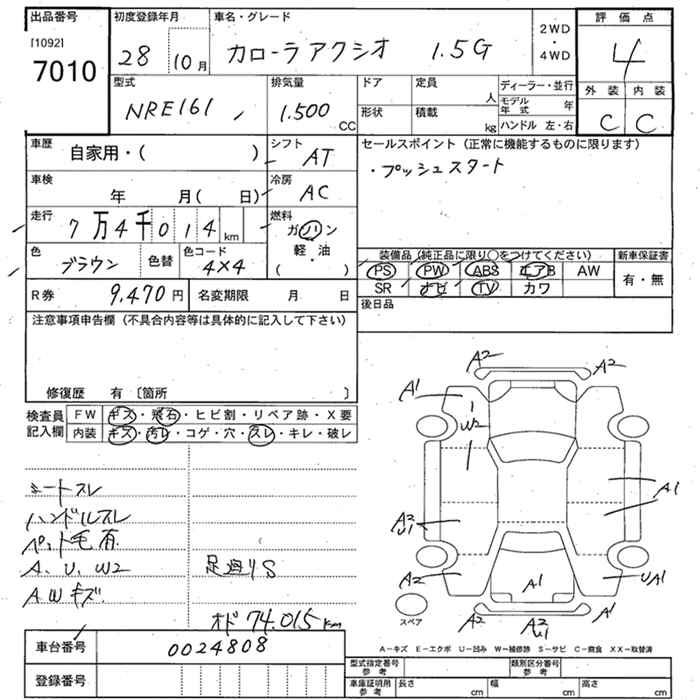 出品番号 初度登録年月 車名・グレード 2WD・4WD 評価点
[1092] 7010 28 10月 カローラアクシオ 1.5G 4
外装 内装
C C
型式 排気量 ドア 定員 人 ディーラー・並行
NRE161 1.500 CC 形状 積載 kg モデル年式 年
ハンドル 左・右
車歴 自家用・( ) シフト AT セールスポイント(正常に機能するものに限ります)
・プッシュスタート
車検 年 月( 日) 冷房 AC
走行 7万4千014km 燃料 ガソリン・軽・油
色 ブラウン 色替 色コード 4X4
装備品(純正品に限り○をつけてください) 新車保証書
PS PW ABS エアB AW 有・無
SR ナビ TV カワ
R券 9,470円 名変期限 月 日 後日品
注意事項申告欄(不具合内容等は具体的に記入して下さい)
修復歴 有〔箇所 〕
検査員記入欄 FW キズ・飛石・ヒビ割・リペア跡・X要
内装 キズ・汚レ・コゲ・穴・スレ・キレ・破レ
シートスレ
ハンドルスレ
ペット毛有
A、U、W2 足廻りS
AWキズ
オド 74.015km
A2 A2
A1 A1
W2
A1
A2 U1
A2 A1 UA1
A2 A2 U1 A1
スペア
A－キズ E－エクボ U－凹み W－補修跡 S－サビ C－腐食 XX－取替済
車台番号 0024808
登録番号
型式指定番号 参考 類別区分番号 参考
車庫証明用 参考 長さ cm 幅 cm 高さ cm